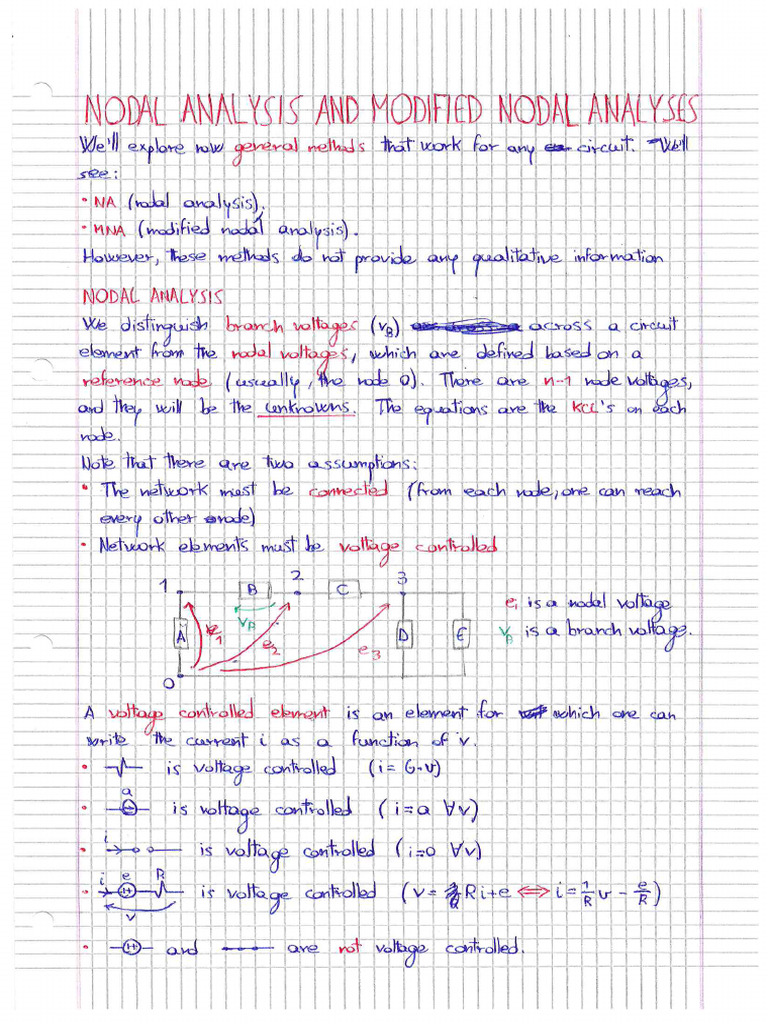 NODAL ANALYSIS AND MODIFIED NODAL ANALYSES
We'll explore now general methods that work for any circuit. We'll
see:
• NA (nodal analysis).
• MNA (modified nodal analysis).
However, these methods do not provide any qualitative information
NODAL ANALYSIS
We distinguish branch voltages (vB) across a circuit
element from the nodal voltages, which are defined based on a
reference node (usually, the node 0). There are n-1 node voltages,
and they will be the unknowns. The equations are the KCL's on each
node.
Note that there are two assumptions:
• The network must be connected (from each node, one can reach
every other node)
• Network elements must be voltage controlled
1 B 2 C 3
vB
A e1 e2 e3 D E
0
e1 is a nodal voltage
vB is a branch voltage.
A voltage controlled element is an element for which one can
write the current i as a function of v.
• is voltage controlled (i = G·v)
a
• is voltage controlled (i=a ∀v)
i
• is voltage controlled (i=0 ∀v)
i e R
• is voltage controlled (v = Ri+e ⇔ i = 1/R v - e/R)
v
• and are not voltage controlled.